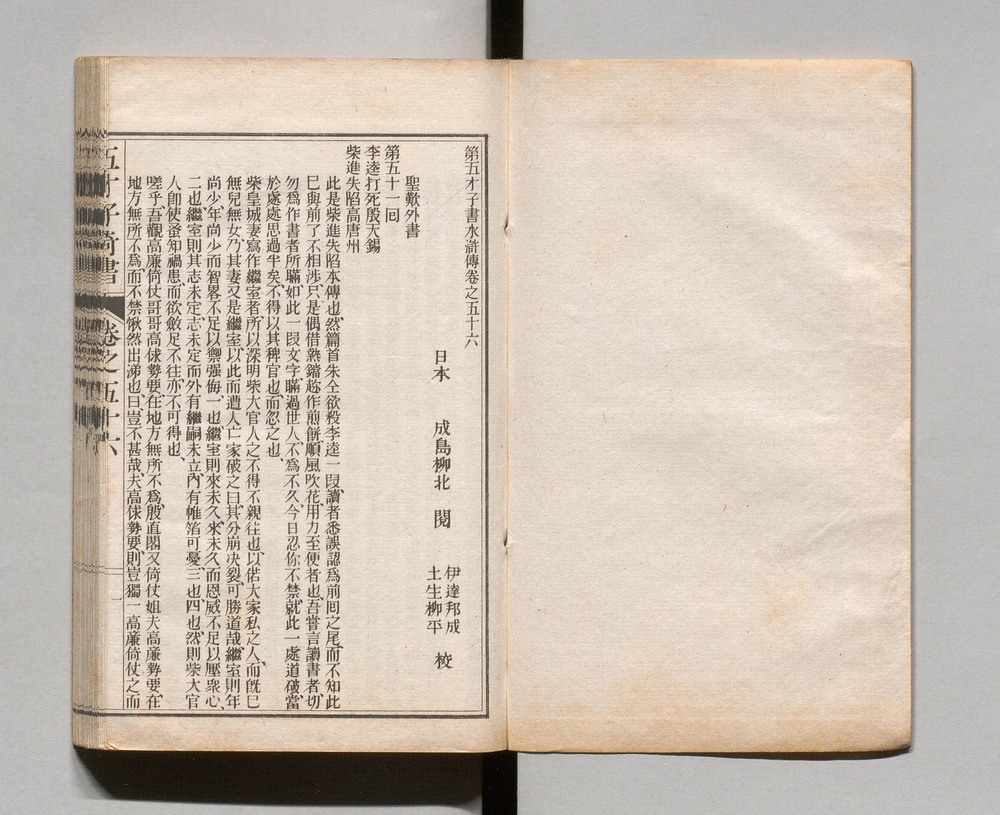 第五才子書水滸傳卷之五十六
日本　成島柳北　閱
伊達邦成
土生柳平　校
聖歎外書
第五十一回
李逵打死殷天錫
柴進失陷高唐州
此是柴進失陷本傳也、然篇首朱仝欲殺李逵一段、讀者悉誤認爲前回之尾、而不知此
已與前了不相涉、只是偶借熱鐺趁作煎餅、順風吹花、用力至便者也、吾嘗言讀書者切
勿爲作書者所瞞、如此一段文字、瞞過世人不爲不久、今日忍你不禁、就此一處道破、當
於處處思過半矣、不得以其稗官也、而忽之也、
柴皇城妻寫作繼室者、所以深明柴大官人之不得不親往也、以偌大家私之人、而旣已
無兒無女、乃其妻又是繼室、以此而遭人亡家破之日、其分崩决裂可勝道哉、繼室則年
尚少、年尚少而智畧不足以禦强侮、一也、繼室則來未久、來未久而恩威不足以壓衆心、
二也、繼室則其志未定、志未定而外有繼嗣未立、內有帷箔可憂、三也四也、然則柴大官
人卽使蚤知禍患、而欲斂足不往、亦不可得也、
嗟乎、吾觀高廉倚仗哥哥高俅勢要、在地方無所不爲、殷直閣又倚仗姐夫高廉勢要、在
地方無所不爲、而不禁愀然出涕也、曰、豈不甚哉、夫高俅勢要、則豈獨一高廉倚仗之而
五才子奇書
卷之五十六
一